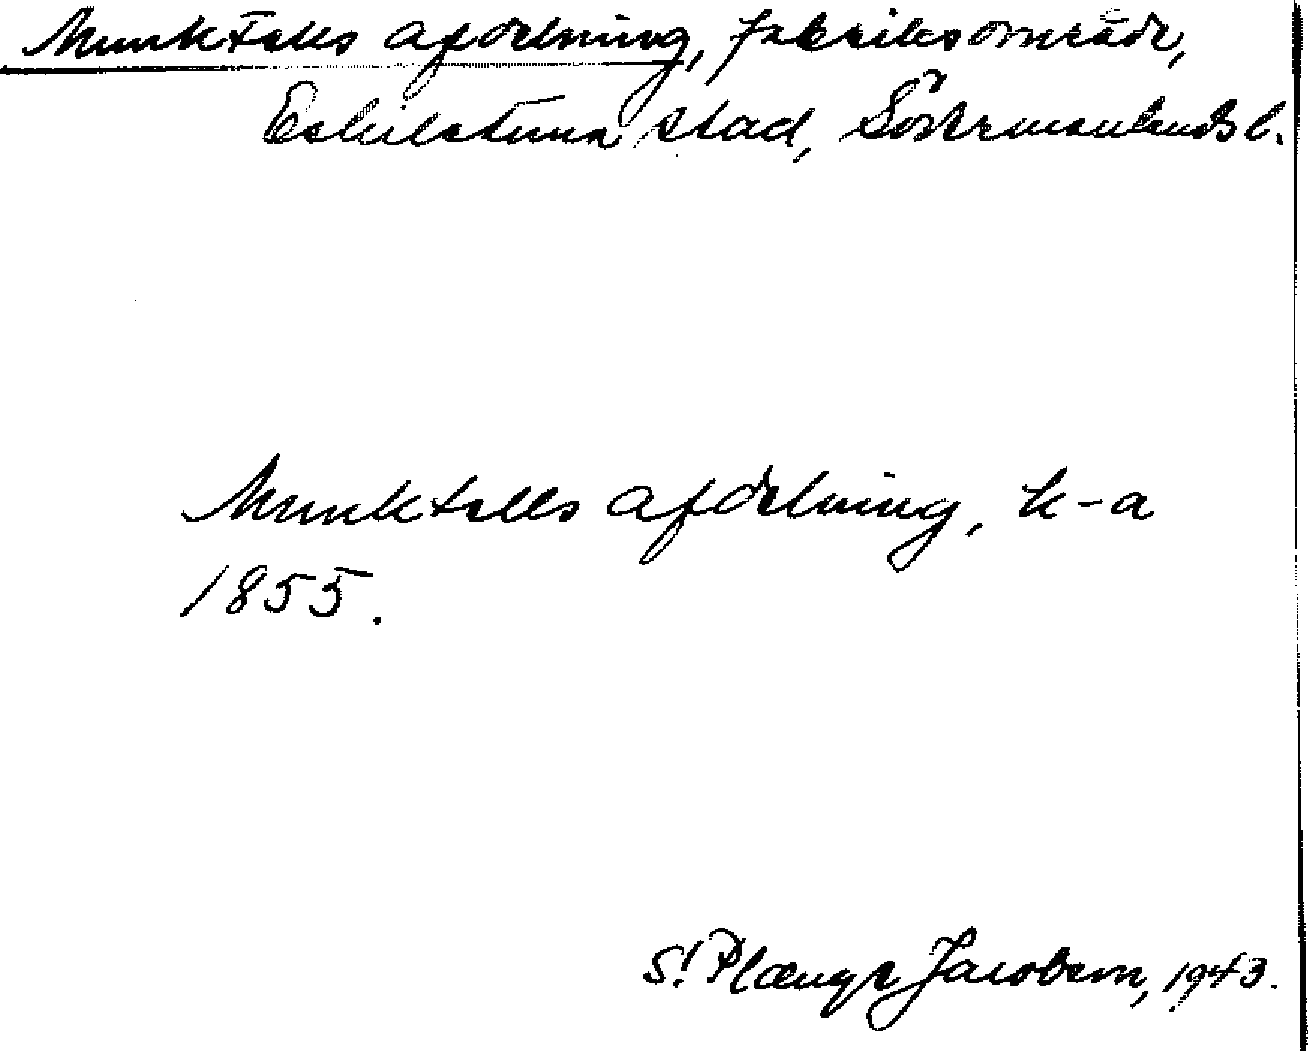 Munktells afdelning, fabriksområde,
Eskilstuna stad, Södermanlands l.
Munktells afdelning, k-a
1855.
S. Plænge Jacobson, 1943.